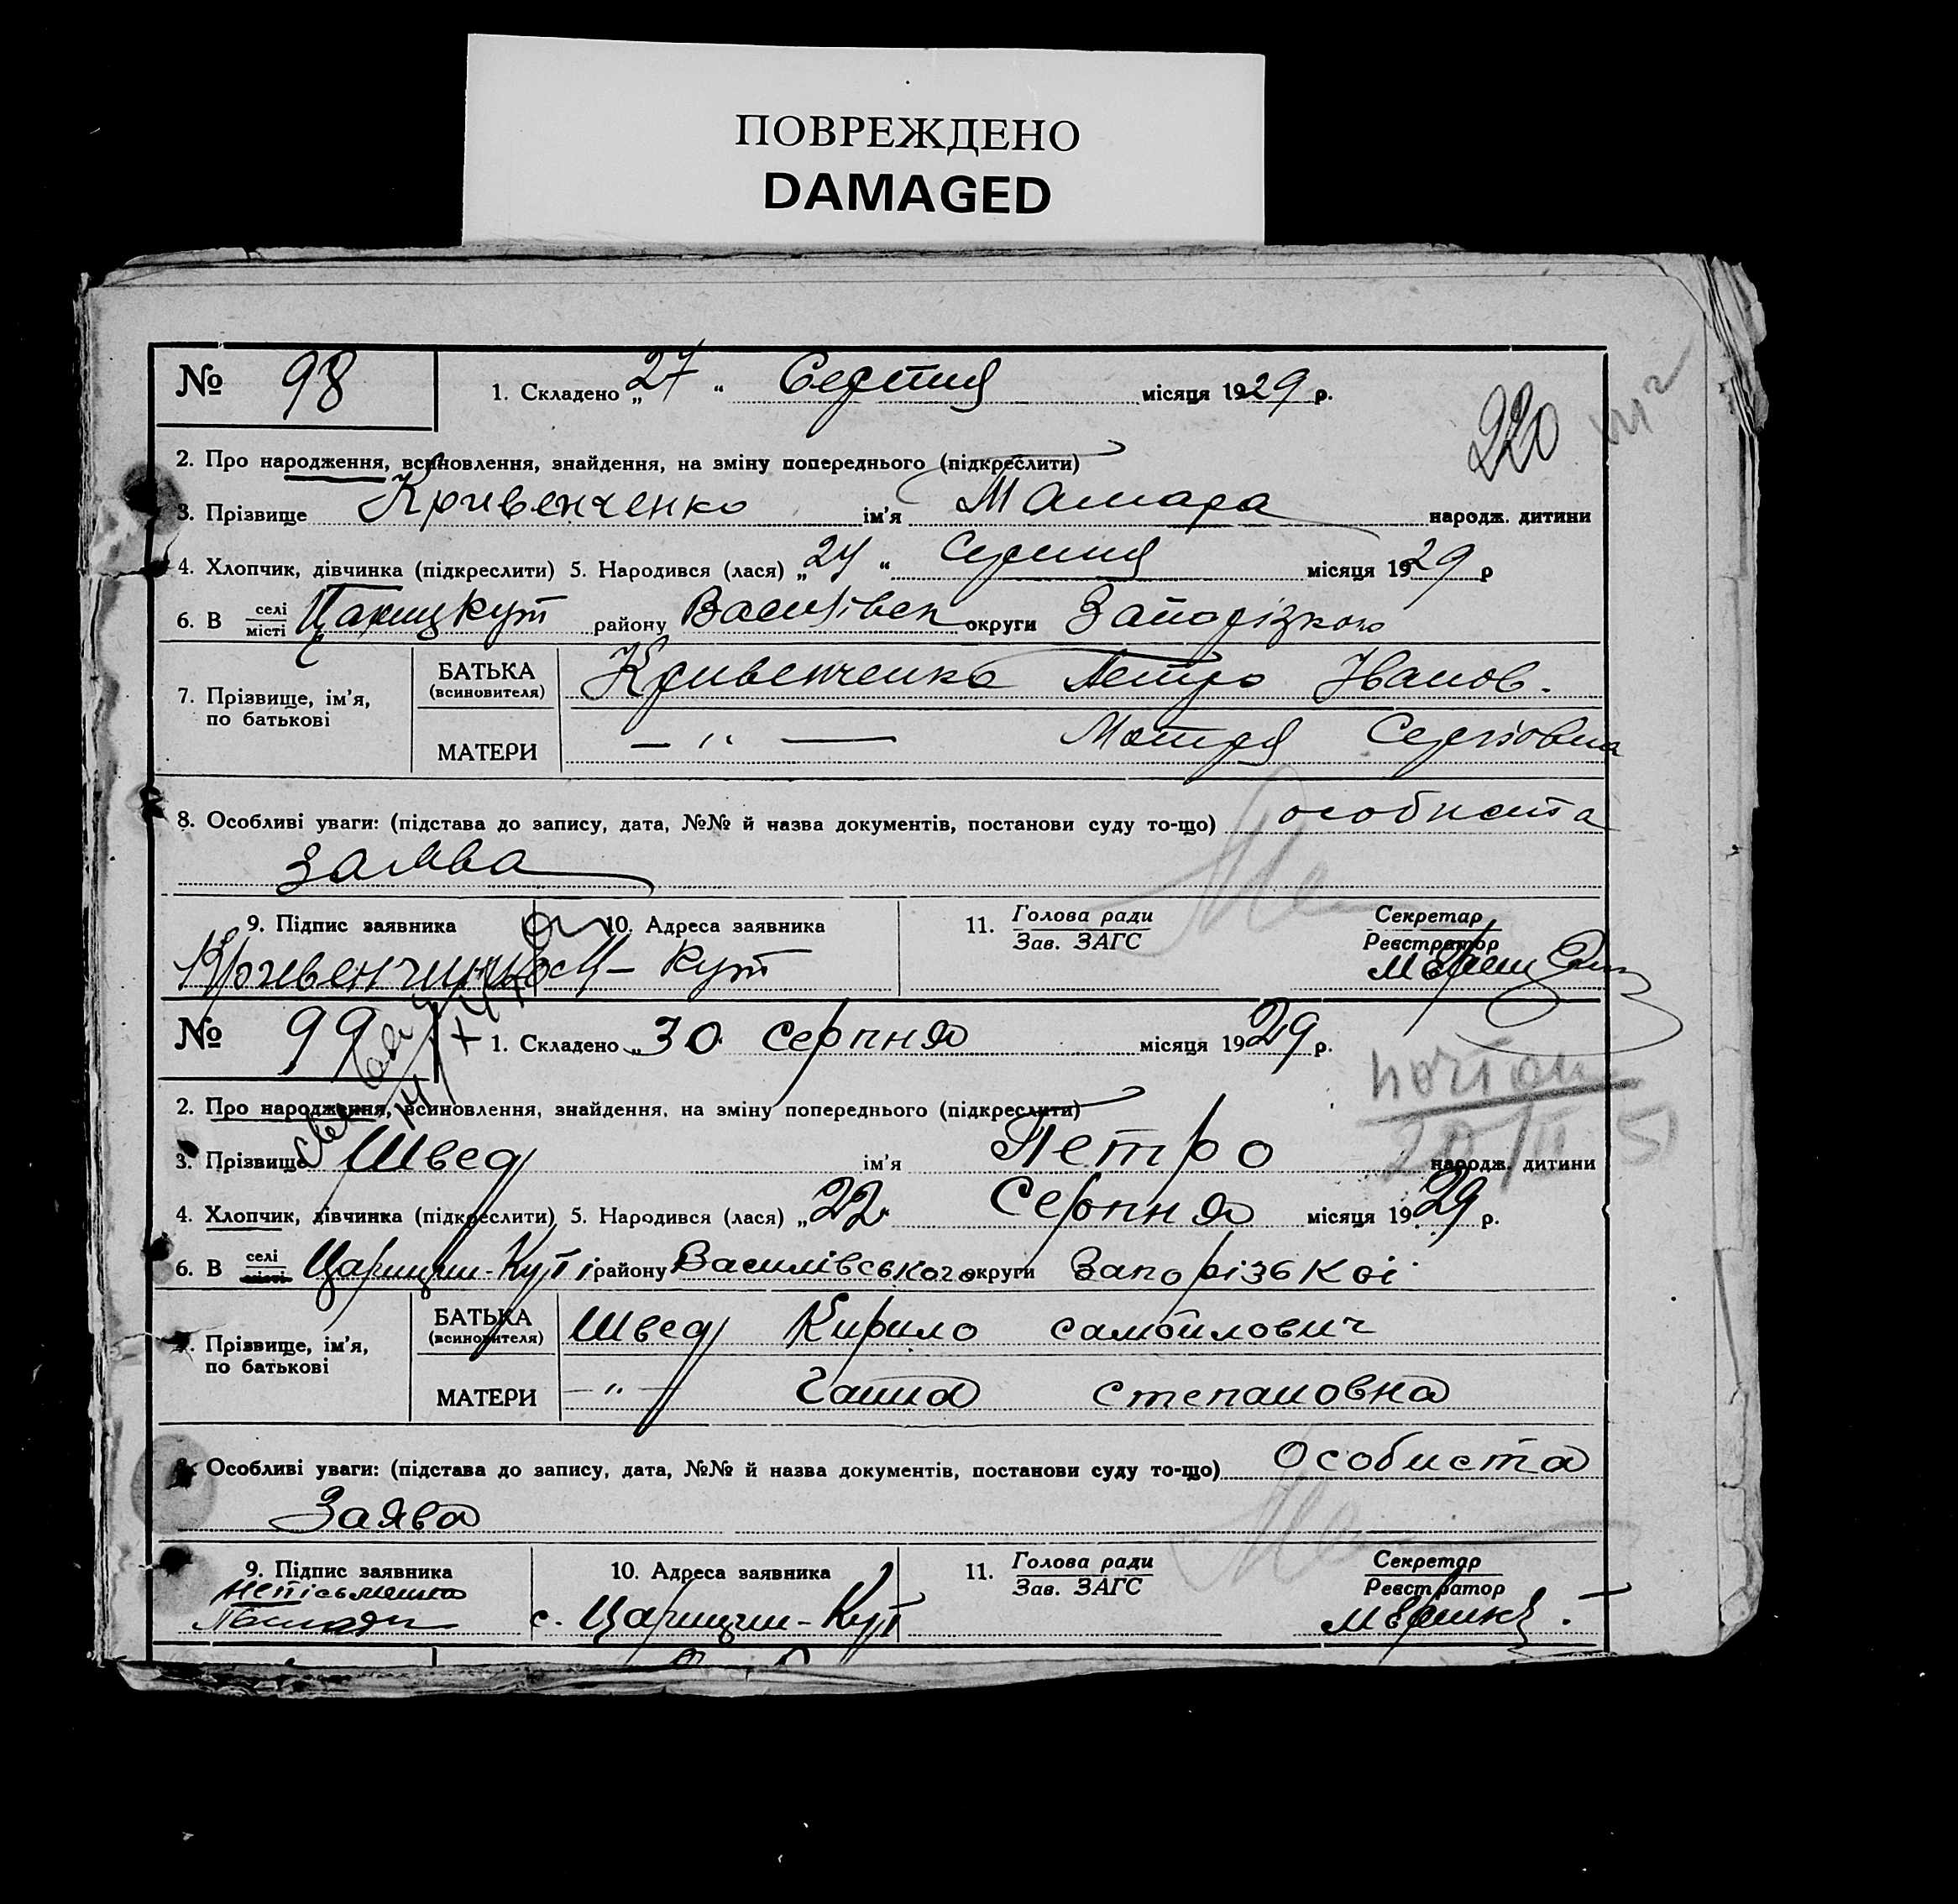 ПОВРЕЖДЕНО
DAMAGED
№ 98
1. Складено „27“ Серпня місяця 1929 р.
220
2. Про народження, всиновлення, знайдення, на зміну попереднього (підкреслити)
3. Прізвище Кривенченко ім’я Тамара народж. дитини
4. Хлопчик, дівчинка (підкреслити) 5. Народився (лася) „24“ Серпня місяця 1929 р
6. В селі/місті Цариц Кут району Василівськ округи Запорізького
7. Прізвище, ім’я, по батькові
БАТЬКА (всиновителя) Кривенченко Петро Іванов.
МАТЕРИ — „ — Мотря Сергіовна
8. Особливі уваги: (підстава до запису, дата, №№ й назва документів, постанови суду то-що) особиста
заява
9. Підпис заявника 10. Адреса заявника 11. Голова ради / Зав. ЗАГС Секретар / Реєстратор
Кривенчинко Ц-Кут
№ 99
1. Складено „30 серпня місяця 1929 р.
2. Про народження, всиновлення, знайдення, на зміну попереднього (підкреслити)
3. Прізвище Швед ім’я Петро народж. дитини
4. Хлопчик, дівчинка (підкреслити) 5. Народився (лася) „22 Серпня місяця 1929 р.
6. В селі/місті Царицин-Куті району Василівського округи Запорізькоі
7. Прізвище, ім’я, по батькові
БАТЬКА (всиновителя) Швед Кирило самойлович
МАТЕРИ — „ — Ганна степановна
8. Особливі уваги: (підстава до запису, дата, №№ й назва документів, постанови суду то-що) Особиста
Заява
9. Підпис заявника 10. Адреса заявника 11. Голова ради / Зав. ЗАГС Секретар / Реєстратор
непісьменна
с. Царицин-Кут